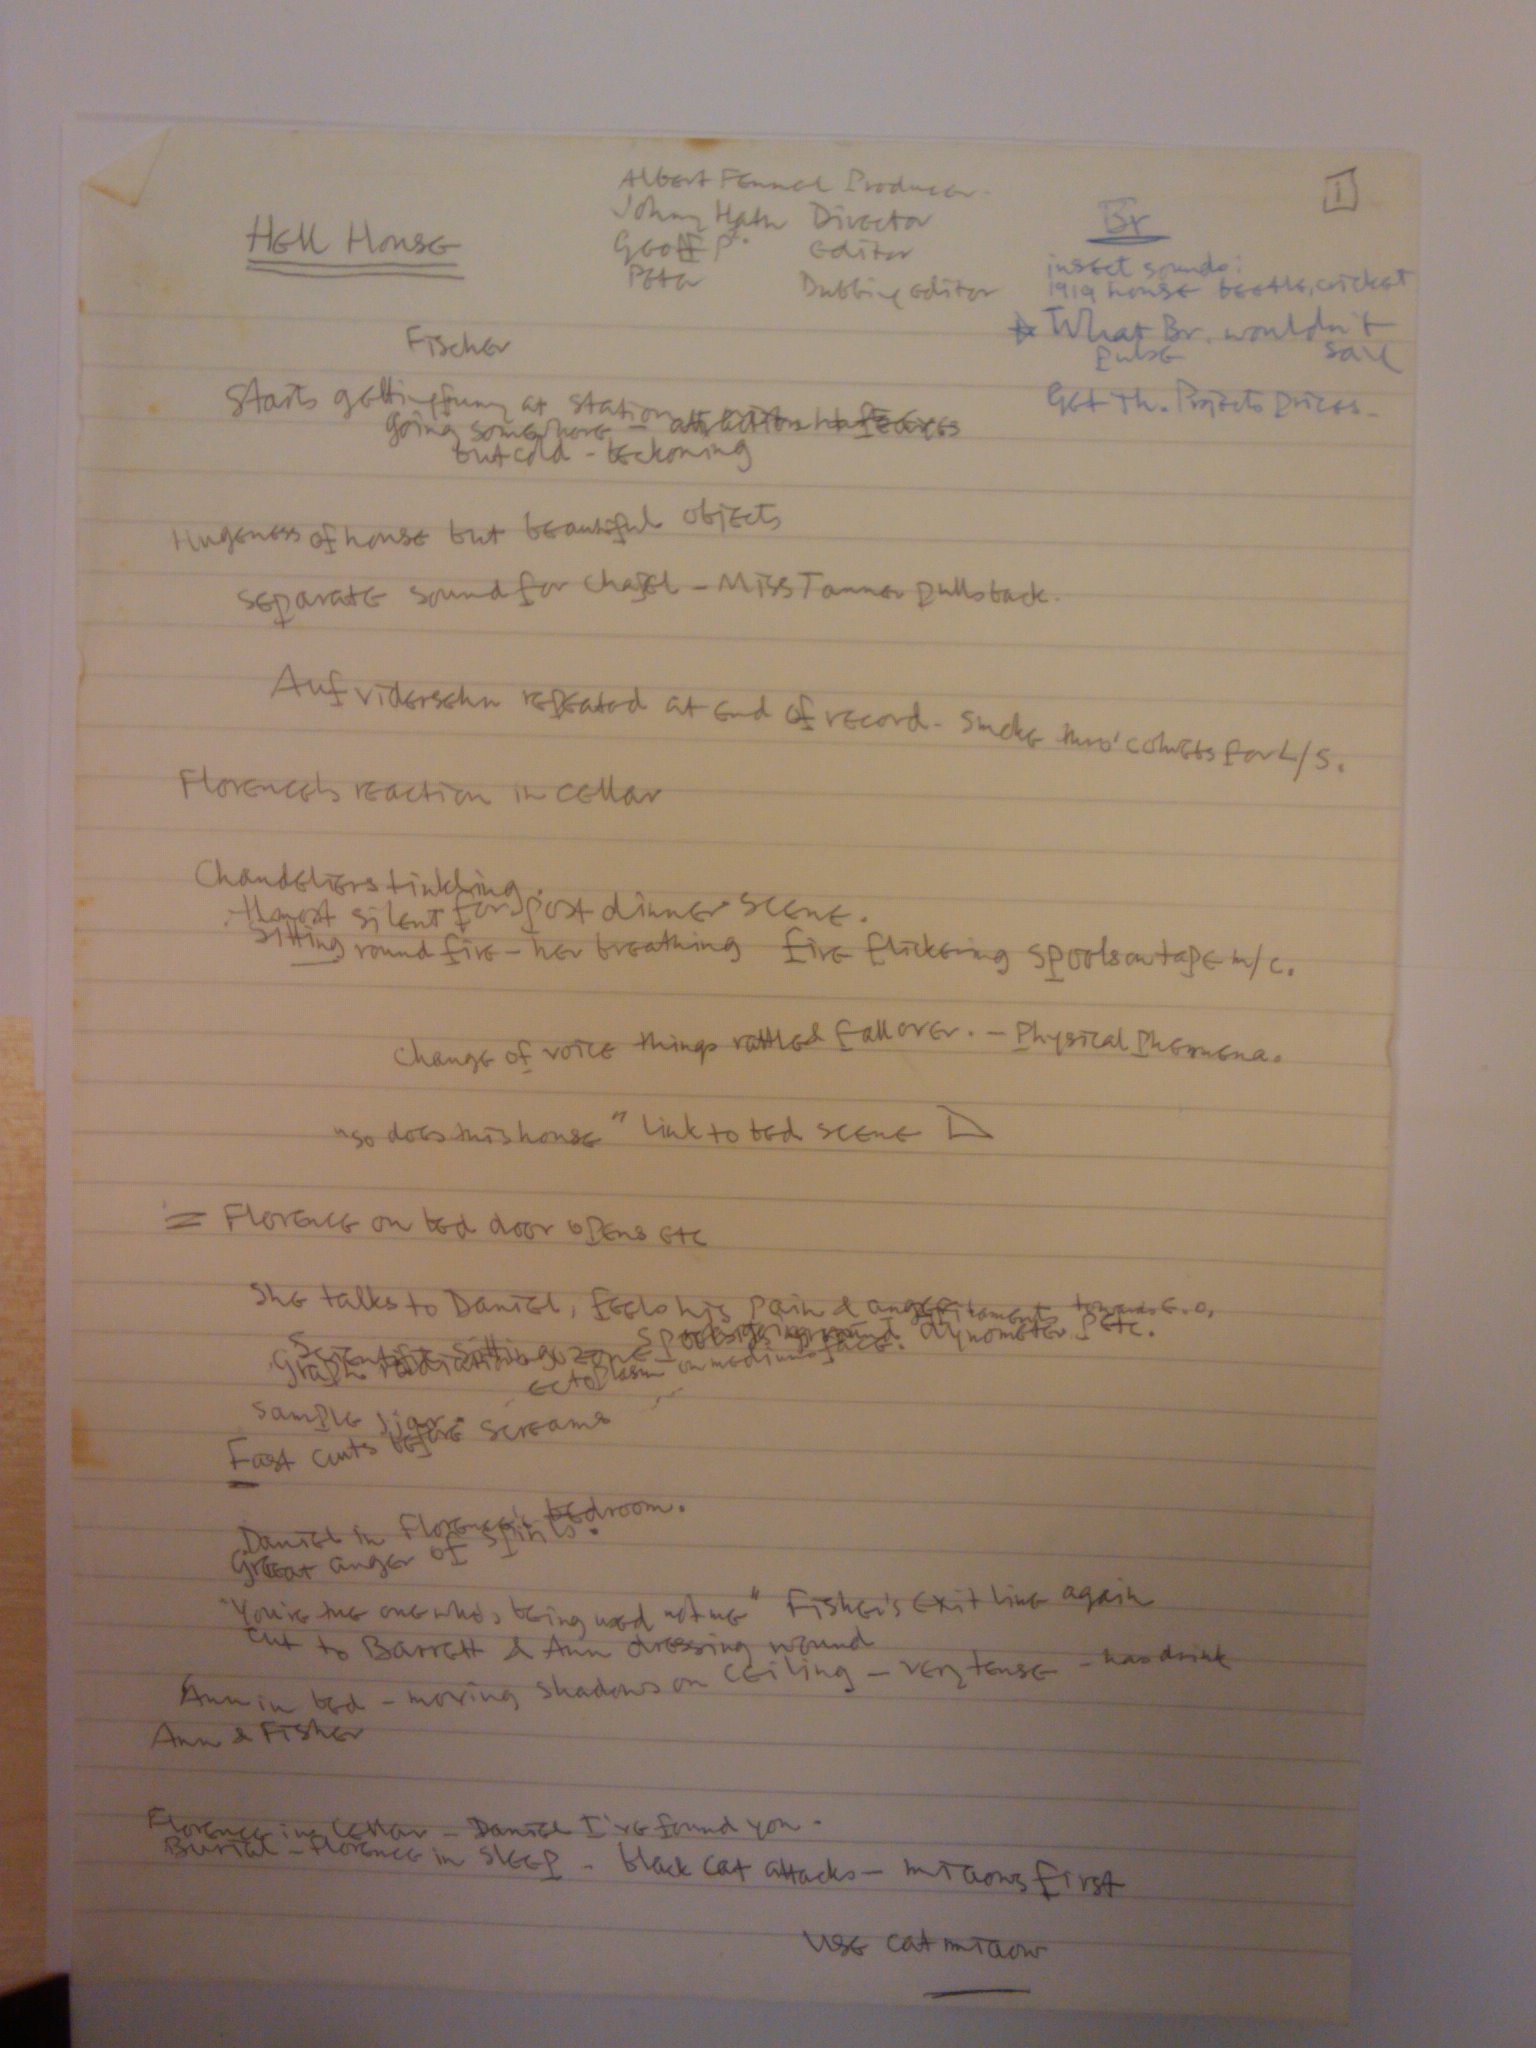 1
Hell House
Albert Fennel Producer.
Johnny Hath Director
Geoff P. editor
Peter Dubbing editor
Br
insect sounds:
1919 house beetle, cricket
What Br. wouldn't
pulse sail
Get Th. Projects prices.
Fischer
Starts getting funny at station
going somewhere –
but cold – beckoning
Hugeness of house but beautiful objects
separate sound for chapel – Miss Tanner pulls back.
Auf vidersehn repeated at end of record – smoke thro' for L/S.
Florence's reaction in cellar
Chandeliers tinkling.
Almost silent for post dinner scene.
Sitting round fire – her breathing fire flickering spools on tape m/c.
Change of voice things rattle & fall over. – Physical Phenmena.
"so does this house" link to bed scene
= Florence on bed door opens etc
She talks to Daniel, feels his pain & anger towards E.O.
Scientific sitting spools going round dynometer etc.
Graph radiation ozone face.
ectoplasm on mediums
Sample jar.
Fast cuts before screams
Daniel in Florence's bedroom.
Great anger of spirits.
"You're the one who's being used not me" Fisher's exit line again
cut to Barrett & Ann dressing wound
Ann in bed – moving shadows on ceiling – very tense – has drink
Ann & Fisher
Florence in Cellar – Daniel I've found you.
Burial – Florence in sleep – black cat attacks – miaows first
use cat miaow